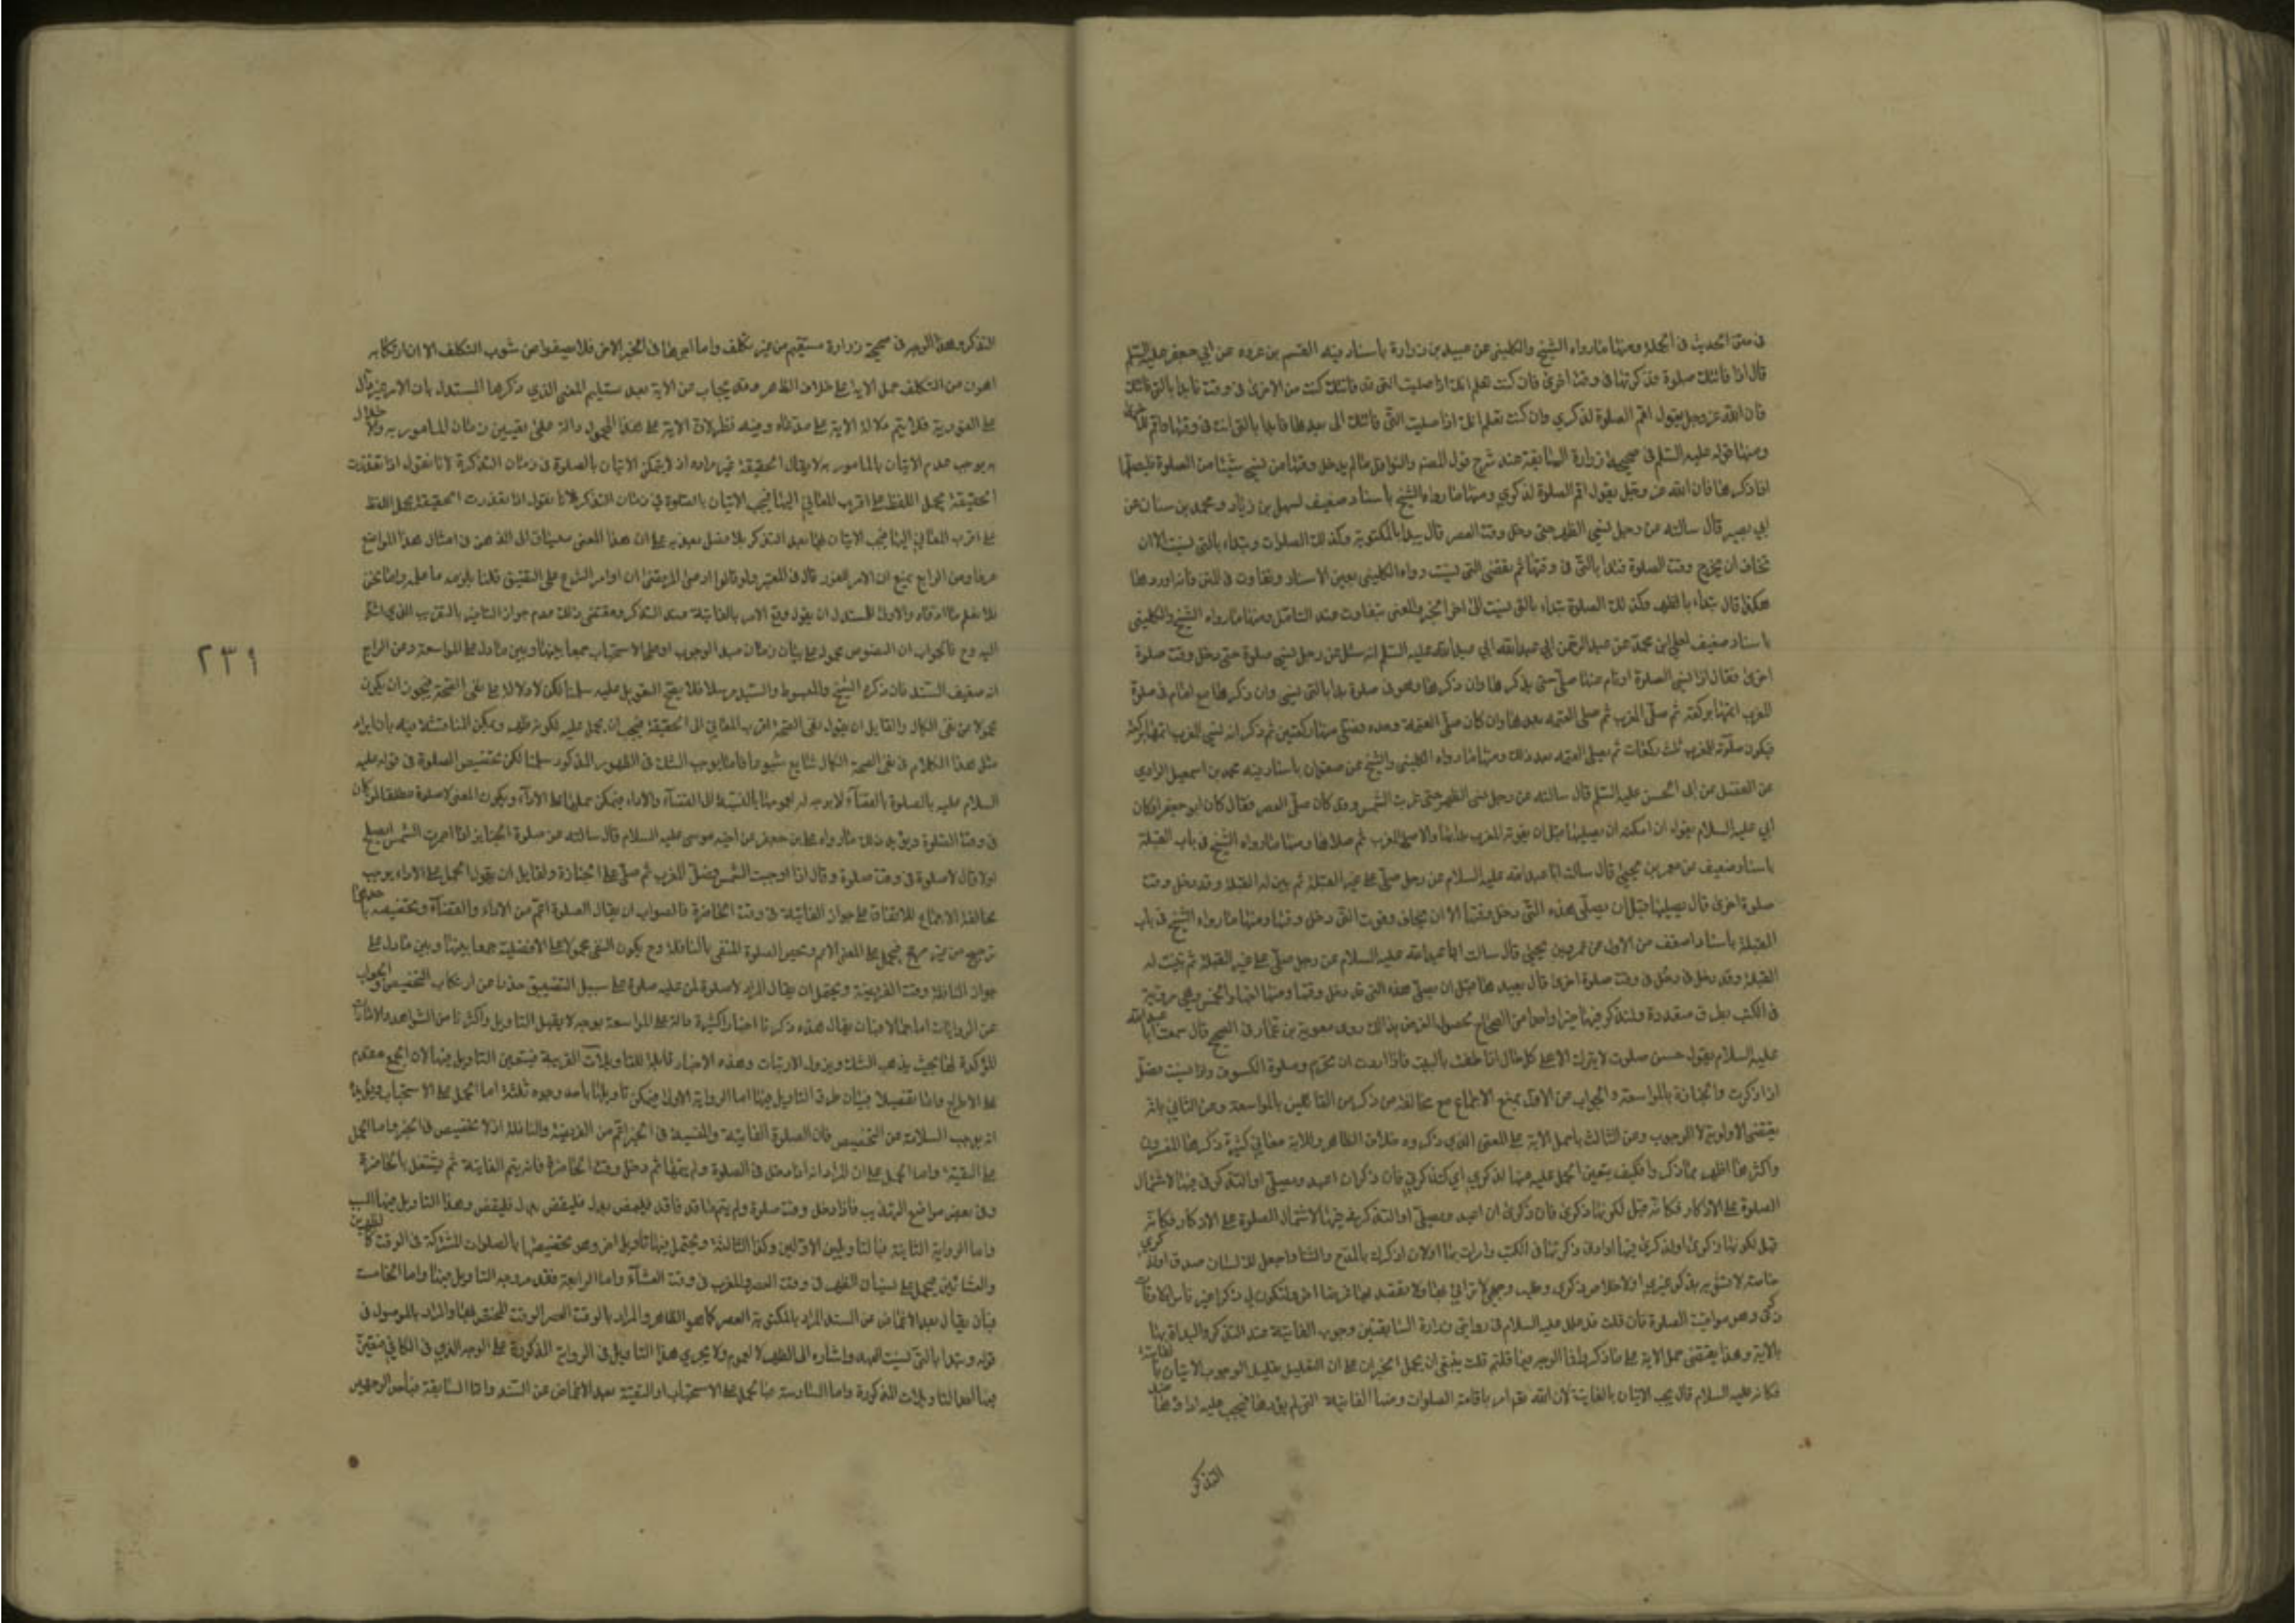 في متن الحديث في الجملة ومنها ما رواه الشيخ والكليني عن عبيد بن زرارة باسناد فيه القسم بن عروه عن ابي جعفر عليه السلم
قال اذا فاتتك صلوة فذكرتها في وقت اخرى فان كنت تعلم انك اذا صليت التي قد فاتتك كنت من الاخرى في وقت فابدا بالتي فاتتك
فان الله عز وجل يقول اقم الصلوة لذكري وان كنت تعلم انك اذا صليت التي فاتتك الى بعدها فابدا بالتي انت في وقتها واقم
ومنها قوله عليه السلم في صحيحة زرارة السابقة عند شرح قول المصنف والنوافل ما لم يدخل وقتها من نسي شيئا من الصلوة فليصلها
اذا ذكرها فان الله عز وجل يقول اقم الصلوة لذكري ومنها ما رواه الشيخ باسناد ضعيف لسهل بن زياد ومحمد بن سنان عن
ابي بصير قال سالته عن رجل نسي الظهر حتى دخل وقت العصر قال يبدا بالمكتوبة وكذلك الصلوات وتبداء بالتي نسيت الا ان
تخاف ان يخرج وقت الصلوة فتبدا بالتي في وقتها ثم تقضى التي نسيت رواه الكليني بعين الاسناد وتفاوت في المتن فانه اوردها
هكذا قال تبداء بالظهر وكذلك الصلوة تبداء بالتي نسيت الى اخر الخبر والمعنى يتفاوت عند التامل ومنها ما رواه الشيخ والكليني
باسناد ضعيف لمعلى بن محمد عن عبد الرحمن ابي عبد الله ابي عبد الله عليه السلم انه سئل عن رجل نسي صلوة حتى دخل وقت صلوة
اخرى فقال اذا نسي الصلوة او نام عنها صلى حتى يذكرها وان ذكرها وهو في صلوة بدا بالتي نسي وان ذكرها مع امام في صلوة
المغرب اتمها بركعة ثم صلى المغرب ثم صلى العتمة بعدها وان كان صلى العتمة وحده فصلى منها ركعتين ثم ذكر انه نسي المغرب اتمها بركعة
فيكون صلوة المغرب ثلث ركعات ثم يصلى العتمه بعد ذلك ومنها ما رواه الكليني والشيخ عن صفوان باسناد فيه محمد بن اسمعيل الراوي
عن الفضل عن ابى الحسن عليه السلم قال سالته عن رجل نسى الظهر حتى غربت الشمس وقد كان صلى العصر فقال كان ابو جعفر او كان
ابي عليه السلام يقول ان امكنه ان يصليها قبل ان يفوته المغرب بدا بها والا صلى المغرب ثم صلاها ومنها ما رواه الشيخ في باب القبلة
باسناد ضعيف عن معمر بن يحيى قال سالت ابا عبد الله عليه السلام عن رجل صلى على غير القبلة ثم تبين له القبلة وقد دخل وقت
صلوة اخرى قال يصليها قبل ان يصلى هذه التي دخل وقتها الا ان يخاف فوت التي دخل وقتها ومنها ما رواه الشيخ في باب
القبلة باسناد اضعف من الاول عن عمرو بن يحيى قال سالت ابا عبد الله عليه السلام عن رجل صلى على غير القبلة ثم تبينت له
القبلة وقد دخل في وقت صلوة اخرى قال يعيدها قبل ان يصلي هذه التي قد دخل وقتها ومنها
في الكتب بطرق متعددة ولنذكر فيها خبرا واحدا من الصحاح لحصول الغرض بذالك روى معوية بن عمار في الصحيح قال سمعت ابا عبد الله
عليه السلام يقول خمس صلوات لا يترك الا على كل حال اذا طفت بالبيت واذا اردت ان تحرم وصلوة الكسوف واذا نسيت فصل
اذا ذكرت والجنازة بالمواسعة والجواب عن الاول بمنع الاجماع مع مخالفة من ذكر من القائلين بالمواسعة وعن الثاني بانه
يقتضي الاولوية لا الوجوب وعن الثالث بان حمل الاية على المعنى الذي ذكروه خلاف الظاهر وللاية معاني كثيرة ذكرها المفسرون
واكثرها اظهر مما ذكر فكيف يتعين الحمل عليه منها لذكري اي لتذكرني فان ذكراي ان اعبد ويصلى او لتذكرني فيها لاشتمال
الصلوة على الاذكار فكانه قيل لكونها ذكرى فان ذكرى ان اعبد ويصلى او لتذكرني فيها لاشتمال الصلوة على الاذكار فكانه
قيل لكونها ذكرى او لذكري فيها او لاني ذكرتها في الكتب وامرت بها او لان اذكرك بالمدح والثنا واجعل لك لسان صدق او لذكري
خاصة لا تشوبه بذكر غيري او لاخلاص ذكرى وطلب وجهي لا ترائي بها ولا تقصد بها غرضا اخر او لتكون لي ذاكرا غير ناس او لاوقات
ذكرى وهي مواقيت الصلوة فان قلت قد علل عليه السلام في روايتي زرارة السابقتين وجوب الفائتة عند التذكر والبداة بها
بالاية وهذا يقتضي حمل الاية على ما ذكر فما الوجه فيما قلتم قلت ينبغي ان يحمل الخبران على ان التعليل تعليل الوجوب الاتيان بالفائتة
فكانه عليه السلام قال يجب الاتيان بالفايتة لان الله تع امر باقامة الصلوات ومنها الفائتة التي لم يؤدها فيجب عليه اداؤها عند
التذكر
التذكر وهذا الوجه في صحيحة زرارة مستقيم من غير تكلف واما اجراؤها في الخبر الاخر فلا يصفوا عن شوب التكلف الا ان ارتكابه
اهون من التكلف حمل الاية على خلاف الظاهر وقد يجاب عن الاية بعد تسليم المعنى الذي ذكرها المستدل بان الامر غير دال
على الفورية فلا يتم دلالة الاية على مدعاه وفيه نظر لان الاية على هذا المحمول دالة على تعيين زمان المامور به والاخلال
به يوجب عدم الاتيان بالمامور به لا يقال الحقيقة غير مراده اذ لا يمكن الاتيان بالصلوة في زمان التذكرة لانا نقول اذا تعذرت
الحقيقة يحمل اللفظ على اقرب المعاني اليها فيجب الاتيان بالصلوة في زمان التذكر لانا نقول اذا تعذرت الحقيقة يحمل اللفظ
على اقرب المعاني اليها فيجب الاتيان بها بعد التذكر بلا فصل يعتد به على ان هذا المعنى ينساق الى الذهن في امثال هذا المواضع
عرفا وعن الرابع بمنع ان الامر للفور قال في المعتبر ولو قالوا ادعى المرتضى ان اوامر الشرع على التضيق قلنا يلزمه ما علمه واما نحن
فلا نعلم ما ادعاه والاولى للمستدل ان يقول وقع الامر بالفائتة عند التذكر ومقتضى ذلك عدم جواز التاخير بالتقريب الذي اشرنا
اليه وح فالجواب ان النصوص محمولة على بيان زمان مبدا الوجوب او على الاستحباب جمعا بينها وبين ما دل على المواسعة وعن الرابع
انه ضعيف السند فان ذكره الشيخ في المبسوط والسيد مرسلا فلا يصح التعويل عليه سلمنا لكن لا دلالة على نفي الصحة فيجوز ان يكون
محمولا عن نفى الكمال والقايل ان يقول نفى الصحة اقرب المعاني الى الحقيقة فيجب ان يحمل عليه لكونه اظهر ويمكن المناقشة فيه بان ايراد
مثل هذا الكلام في نفى الصحة الكمال شايع شيوعا فاشيا يوجب الشك في الظهور المذكور سلمنا لكن تخصيص الصلوة في قوله عليه
السلام عليه بالصلوة بالقضاء لا يوجه له اعمومها بالنسبة الى القضاء والاداء فيمكن حملها على الاداء ويكون المعنى لا صلوة مطلقا لمن كان
في وقت الصلوة ويؤيد ذلك ما رواه على بن جعفر عن اخيه موسى عليه السلام قال سالته عن صلوة الجنايز اذا احمرت الشمس ايصلح
اولا قال لا صلوة في وقت صلوة وقال اذا وجبت الشمس فصل المغرب ثم صلى على الجنازة ولقايل ان يقول الحمل على الاداء يوجب
مخالفة الاجماع للاتفاق على جواز الفائتة في وقت الحاضرة فالصواب ان يقال الصلوة اعم من الاداء والقضاء وتخصيصه باحدهما
ترجيح من غير مرجح فيحمل على المعنى الاعم ويخص الصلوة المنفى بالنافلة وح يكون النفى محمولا على الافضلية جمعا بينها وبين ما دل على
جواز النافلة وقت الفريضة ويحتمل ان يقال المراد لا صلوة لمن عليه صلوة على سبيل التضييق حذرا من ارتكاب التخصيص والجواب
عن الروايات اما اجمالا فبان يقال هذه ذكرنا اخبارا كثيرة دالة على المواسعة بوجه لا يقبل التاويل واكثرنا من الشواهد والامارات
المؤكدة لها بحيث يذهب الشك ويزول الارتياب وهذه الاخبار قابلة للتاويلات القريبة فيتعين التاويل فيها لان الجمع مقدم
على الاطراح واما تفصيلا فبيان طرق التاويل فيها اما الرواية الاولى فيمكن تاويلها باحد وجوه ثلثة اما الحمل على الاستحباب ويؤيده
انه يوجب السلامة عن التخصيص فان الصلوة الفائتة والمنسية في الخبر اعم من الفريضة والنافلة اذ لا تخصيص في الخبر واما الحمل
على التقية واما الحمل على ان المراد انه اذا دخل في الصلوة ولم يتمها ثم دخل وقت الحاضرة فانه يتم الفائتة ثم يشتغل بالحاضرة
وفي بعض مواضع التهذيب فاذا دخل وقت صلوة ولم يتم ما قد فاته فليمض بدل فليقض وهذا التاويل فيها انسب
واما الرواية الثانية فبالتاويلين الاولين وكذا الثالثة ويحتمل فيها تاويل اخر وهو تخصيصها بالصلوات المشتركة في الوقت كالظهرين
والعشائين فيحمل على نسيان الظهر في وقت العصر والمغرب في وقت العشاء واما الرابعة فقد مر وجه التاويل فيها واما الخامسة
فبان يقال بعد الاغماض عن السند المراد بالمكتوبة العصر كما هو الظاهر والمراد بالوقت العصر الوقت المختص بها والمراد بالموصول في
قوله ويبدا بالتي نسيت العهد واشاره الى الظهر لا العموم ولا يجري هذا التاويل في الرواية المذكورة على الوجه الذي في الكافي فتعين
فيها احد التاويلات المذكورة واما السادسة فبالحمل على الاستحباب او التقية بعد الاغماض عن السند واما السابعة فباحد الوجهين
٢٣٩